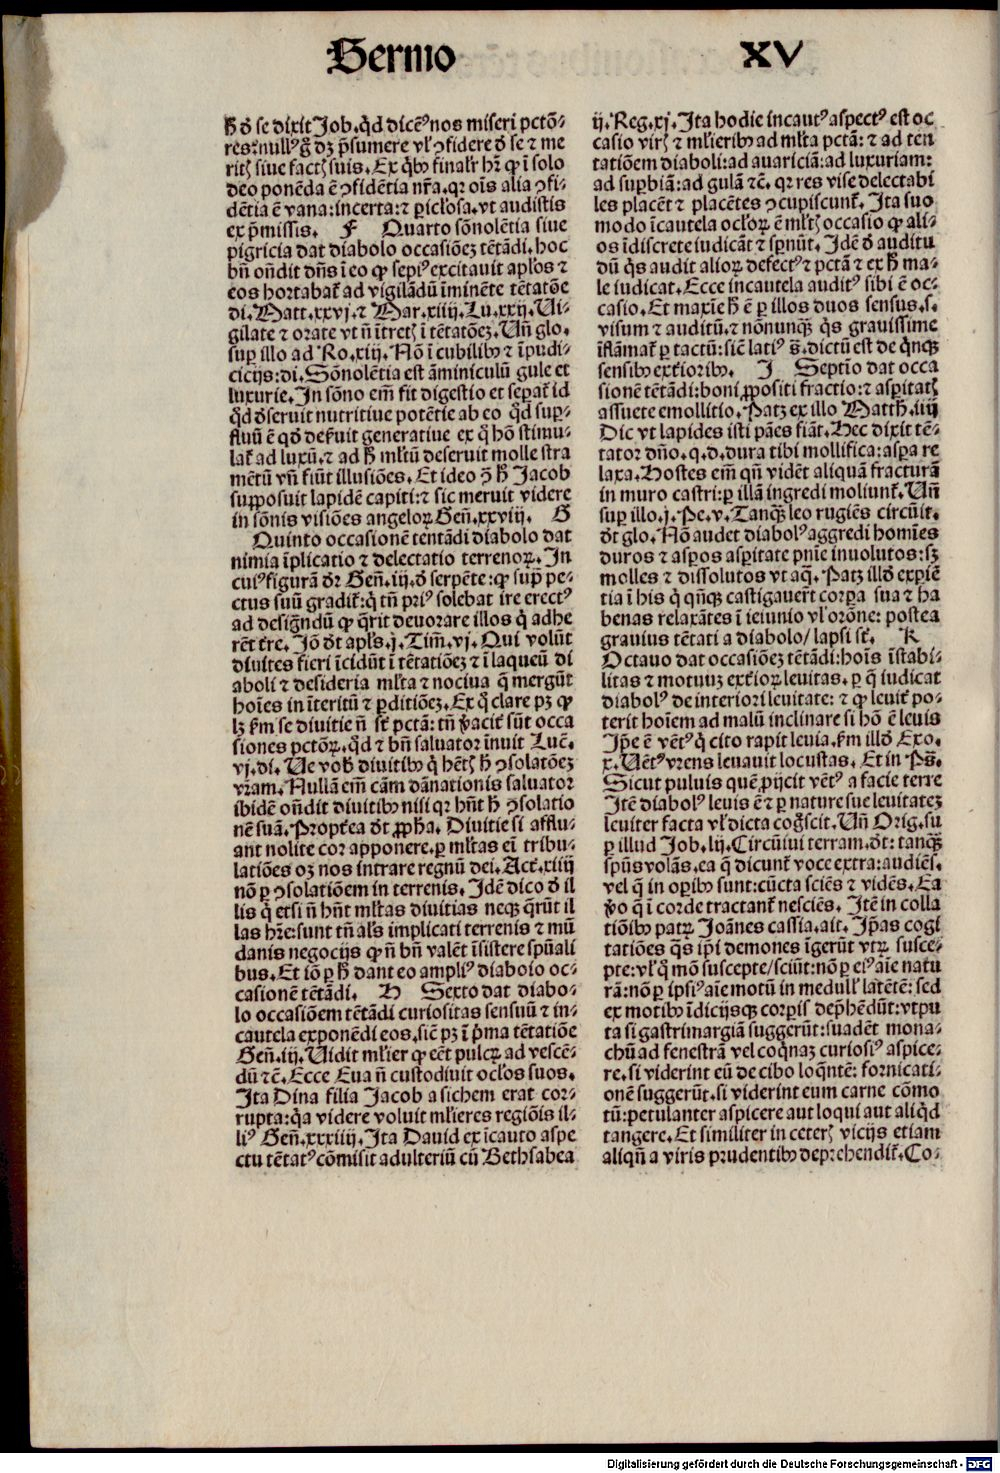 Sermo XV
ħ đ se dixit Job. q̇d dicēꝰ nos miseri pctō-
res: nullꝰ g̊ dꝫ p̄sumere vł ꝯfidere đ se ⁊ me
ritꝭ siue factꝭ suis. Ex q̇bꝰ finalr̄ hr̄ ꝙ ī solo
deo ponēda ē ꝯfidētia nr̄a. qꝛ oīs alia ꝯfi-
dētia ē vana: incerta: ⁊ ꝑiclōsa. vt audistis
ex p̄missis. F Quarto sōnolētia siue
pigricia dat diabolo occasiōeꝫ tētādi. hoc
bn̄ oñdit dn̄s ī eo ꝙ sepiꝰ excitauit apłos ⁊
eos hortabat᷑ ad vigilādū īminēte tētatōe
di. Matt. xxvj. ⁊ Mar. xiiij. Lu. xxij. Ui-
gilate ⁊ orate vt n̄ ītretꝭ ī tētatōeꝫ. Uñ glo.
suꝑ illo ad Ro. xiij. Nō ī cubilibꝰ ⁊ īpudi-
cicijs: di. Sōnolētia est āminiculū gule et
luxurie. In sōno em̄ fit digestio et seꝑat᷑ id
q̇d đseruit nutritiue potētie ab eo q̇d suꝑ-
fluū ē qđ deẜuit generatiue ex q̇ hō stimu-
lat᷑ ad luxū. ⁊ ad ħ mltū deseruit molle stra
mētū vñ fiūt illusiōes. Et ideo ꝯ̄ ħ Jacob
supposuit lapidē capiti: ⁊ sic meruit videre
in sōnis visiōes angeloꝝ Geñ. xxviij. G
Quinto occasionē tentādi diabolo dat
nimia īplicatio ⁊ delectatio terrenoꝝ. In
cuiꝰ figurā đr Geñ. iij. đ serpēte: ꝙ sup̄ pe-
ctus suū gradit᷑: q̇ tn̄ priꝰ solebat ire erectꝰ
ad design̄dū ꝙ q̄rit deuorare illos q̇ adhe
rēt t᷑re. Jō đt apłs. j. Tim̄. vj. Qui volūt
diuites fieri īcidūt ī tētatiōeꝫ ⁊ ī laqueū di
aboli ⁊ desideria młta ⁊ nociua q̄ mergūt
hoīes in īteritū ⁊ ꝑditiōeꝫ. Ex q̇ clare pꝫ ꝙ
lꝫ ẜm se diuitie n̄ st̄ pctā: tn̄ v̓acit᷑ sūt occa
siones pctōꝝ. q̇d ⁊ bn̄ saluator īnuit Luē.
vj. di. Ue vob̄ diuitibꝰ q̇ hētꝭ ħ ꝯsolatōeꝫ
vr̄am. Nullā em̄ cām dānationis saluator
ibidē oñdit diuitibꝰ nisi qꝛ hn̄t ħ ꝯsolatio
nē suā. Propt᷑ea đt ꝓpħa. Diuitie si afflu-
ant nolite cor apponere. ꝑ młtas em̄ tribu-
latiōes oꝫ nos intrare regnū dei. Act᷑. xiiij
nō ꝑ ꝯsolatiōem in terrenis. Idē dico đ il
lis q̇ etsi n̄ hn̄t młtas diuitias neqꝫ q̄rūt il
las hr̄e: sunt tn̄ ałs īmplicati terrenis ⁊ mū
danis negocijs ꝙ n̄ bn̄ valēt īsistere spūali
bus. Et iō ꝑ ħ dant eo ampliꝰ diabolo oc-
casionē tētādi. H Sexto dat diabo-
lo occasiōem tētādi curiositas sensuū ⁊ in-
cautela exponēdi eos. sic̄ pꝫ ī p̓ma tētatiōe
Geñ. iij. Uidit młier ꝙ eēt pulcꝝ ad vescē-
dū ⁊c̄. Ecce Eua n̄ custodiuit ocłos suos.
Ita Dina filia Jacob a sichem erat cor-
rupta: q̇a videre voluit młieres regiōis il-
liꝰ Geñ. xxxiiij. Ita Dauid ex īcauto aspe
ctu tētatꝰ cōmisit adulteriū cū Bethsabea
ij. Reg. xj. Ita hodie incautꝰ aspectꝰ est oc
casio virꝭ ⁊ młieribꝰ ad młta pctā: ⁊ ad ten
tatiōem diaboli: ad auariciā: ad luxuriam:
ad suꝑbiā: ad gulā ⁊c̄. qꝛ res vise delectabi
les placēt ⁊ placētes ꝯcupiscunt᷑. Ita suo
modo īcautela ocłoꝝ ē młtꝭ occasio ꝙ ali-
os īdiscrete iudicāt ⁊ sꝑnūt. Idē đ auditu
dū q̇s audit alioꝝ defectꝰ ⁊ pctā ⁊ ex ħ ma-
le iudicat. Ecce incautela auditꝰ sibi ē oc-
casio. Et maxīe ħ ē ꝑ illos duos sensus. s.
visum ⁊ auditū. ⁊ nōnunqꝫ q̇s grauissime
īflāmat᷑ ꝑ tactū: sic̄ latiꝰ s̄. dictū est de q̇nqꝫ
sensibꝰ ext᷑ioribꝰ. I Septīo dat occa
sionē tētādi: boni ꝓpositi fractio: ⁊ asꝑitatꝭ
assuete emollitio. Patꝫ ex illo Mattħ. iiij
Dic vt lapides isti pāes fiāt. Hec dixit tē-
tator dn̄o. q. d. dura tibi mollifica: asꝑa re
laxa. Hostes em̄ qn̄ vidēt aliquā fracturā
in muro castri: ꝑ illā ingredi moliunt᷑. Uñ
suꝑ illo. j. Pe. v. Tanqꝫ leo rugiēs circūit.
đt glo. Nō audet diabolꝰ aggredi homīes
duros ⁊ asꝑos asꝑitate pn̄ie inuolutos: sꝫ
molles ⁊ dissolutos vt aq̄. Patꝫ illđ exꝑiē
tia ī his q̇ qn̄qꝫ castigauer̄t corꝑa sua ⁊ ha
benas relaxātes ī ieiunio vł orōne: postea
grauius tētati a diabolo/ lapsi st̄. K
Octauo dat occasiōeꝫ tētādi: hoīs īstabi-
litas ⁊ motuuꝫ ext᷑ioꝝ leuitas. ꝑ q̄ iudicat
diabolꝰ de interiori leuitate: ⁊ ꝙ leuit᷑ po-
terit hoīem ad malū inclinare si hō ē leuis
Ip̄e ē vētꝰ q̇ cito rapit leuia. ẜm illđ Exo.
x. Uētꝰ vrens leuauit locustas. Et in Ps̄.
Sicut puluis quē ꝓijcit vētꝰ a facie terre
Itē diabolꝰ leuis ē ⁊ ꝑ nature sue leuitateꝫ
leuiter facta vł dicta cog̊scit. Uñ Orig. su
ꝑ illud Job. ij. Circūiui terram. đt: tanqꝫ
spūs volās. ea q̄ dicunt᷑ voce extra: audiēs.
vel q̄ in oꝑibꝰ sunt: cūcta sciēs ⁊ vidēs. Ea
v̓o q̄ ī corde tractant᷑ nesciēs. Itē in colla
tiōibꝰ patꝝ Joānes cassia. ait. Ip̄as cogi
tatiōes q̄s ip̄i demones īgerūt vtꝝ susce-
pte: vł q̇ mō suscepte/ sciūt: nō ꝑ eiꝰ aīe natu
rā: nō ꝑ ipsiꝰ aīe motū in medull᷑ latētē: sed
ex motibꝰ īdicijsqꝫ corꝑis dep̄hēdūt: vtpu
ta si gastrimargiā suggerūt: suadēt mona-
chū ad fenestrā vel coq̇naꝫ curiosiꝰ aspice-
re. si viderint eū de cibo loq̄ntē: fornicati-
onē suggerūt. si viderint eum carne cōmo
tū: petulanter aspicere aut loqui aut aliq̇d
tangere. Et similiter in ceterꝭ vicijs etiam
aliqn̄ a viris prudentibꝰ deprehendit᷑. Co-
Digitalisierung gefördert durch die Deutsche Forschungsgemeinschaft - DFG